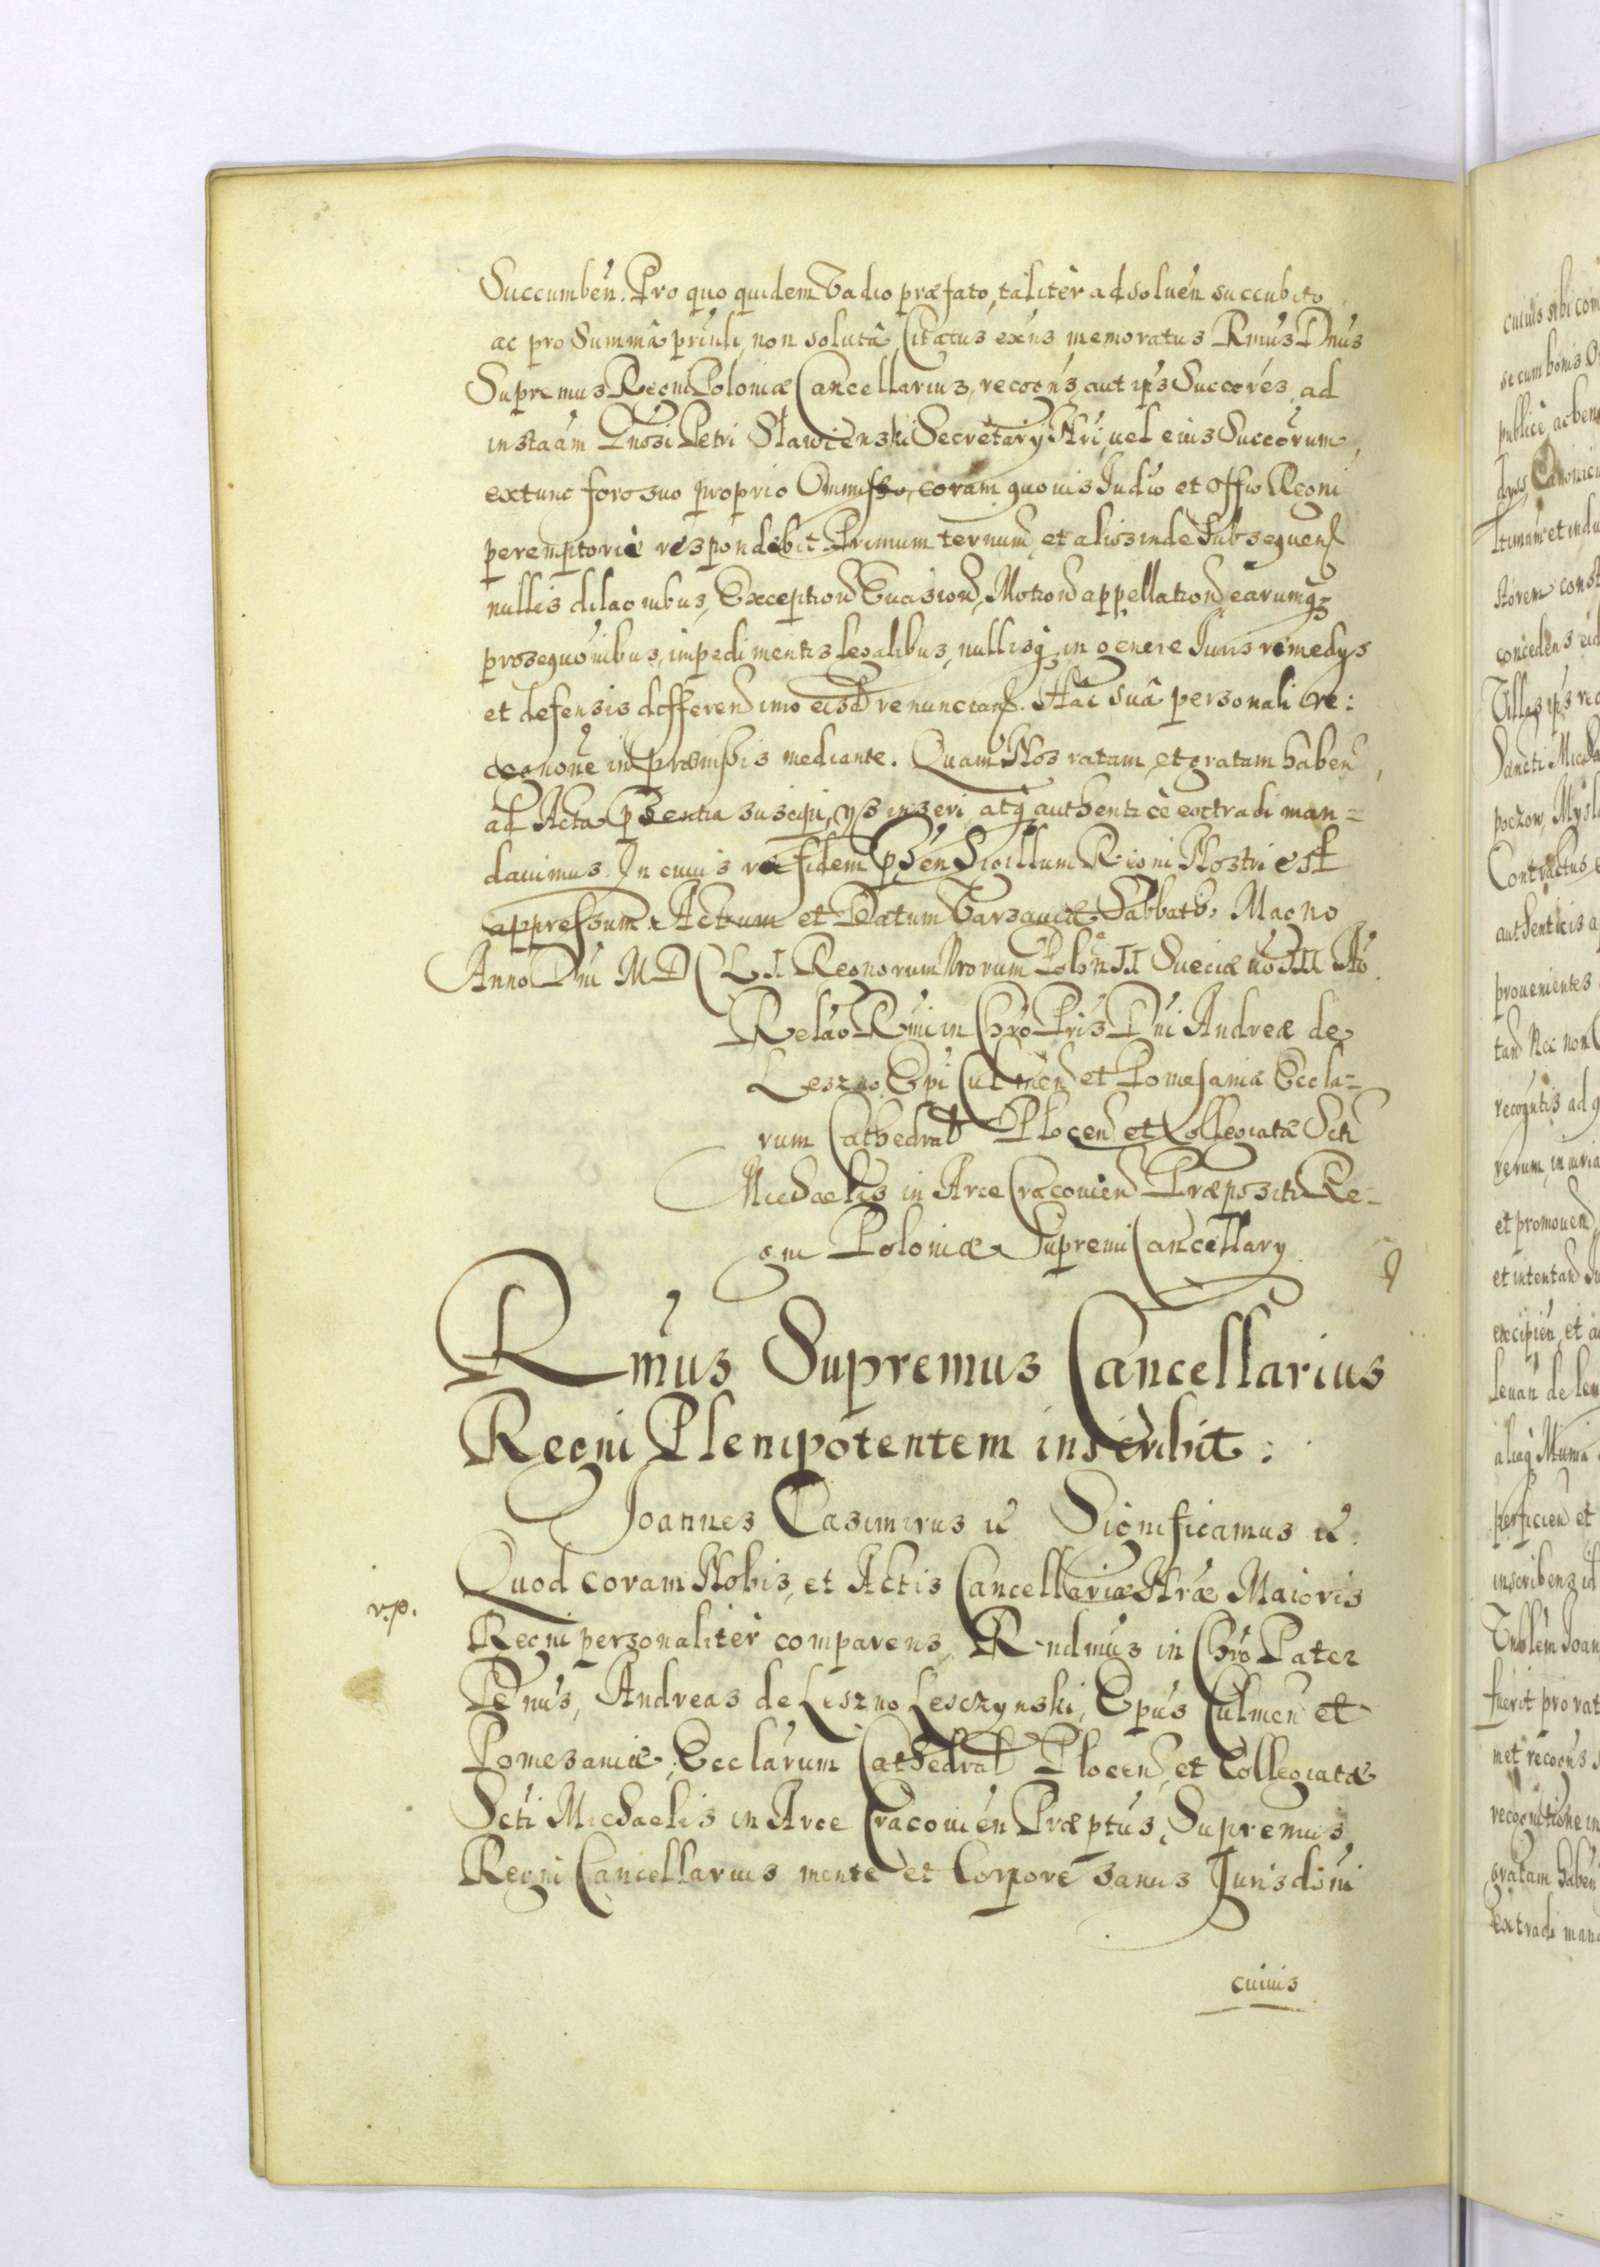 Succumbeñ. Pro quo quidem Vadio præfato, taliter ad solueñ succubito
ac pro Summâ priñli, non solutâ Citatus exñs memoratus Rmus Dnus
Supremus Regni Poloniæ Cancellarius, recogñs, aut ips Succores, ad
instaãm Gnosi Petri Sławienski Secretary Nri, uel eius Succorum,
extunc foro suo proprio Ommisso, coram quouis Iudio et Offio Regni
peremptoriè respondebit Primum ternum, et alios inde Subsequen
nullis dilaonibus, Exception Euasion, Motion appellation earumq
prosequonibus, impedimentis legalibus, nullisq in genere Iuris remedys
et defensis differend imo eisd renuncian. Hac suâ personali re:
cognone in præmissis mediante. Quam Nos ratam, et gratam haben,
ad Acta Psentia suscipi, ys inseri, atq authenticè extradi man=
dauimus. In cuius rei fidem Psen Sigillum Regni Nostri est
appressum. Actum et Datum Varsauiæ Sabbatho Magno
Anno Dni MDCLI Regnorum Nrorum Polon II Sueciæ uo III Ao.
Relao Rmi in Chro Pris Dni Andreæ de
Leszno Epi Culmen et Pomesaniæ Eccla=
rum Cathedral Plocen et Collegiatæ Scti
Michaelis in Arce Cracouien Præpositi Re=
gni Poloniæ Supremi Cancellary
Rmus Supremus Cancellarius
Regni Plenipotentem inscribit:
Joannes Casimirus &c Significamus &c
Quod coram Nobis, et Actis Cancellariæ Nræ Maioris
r.p.
Regni personalitèr comparens, R-ndmus in Chro Pater
Dnus, Andreas de Leszno Lesczynski, Epus Culmen et
Pomesaniæ, Ecclarum Cathedral Plocen, et Collegiatæ
Scti Michaelis in Arce Cracouien Præptus, Supremus
Regni Cancellarius mente et Corpore sanus Jurisdoni
cuiuis
cuiuis sibi com
se cum bonis
publicè, ac ben
Canonicu
ltimam et indu
concedens eid
Villas ips rec
Sancti Micha
poczow, Mysl
Contractus e
authenticis a
prouenientes
tan Nec non
recogntis ad q
rerum, in iuria
et promouen
et intentan Iu
excipien, et a
leuan de leu
aliaq Munia
perficien et
inscribens id
Gnblem Joan
fuerit pro rat
met recogñs
recognitione in
gratam haben
extradi mand